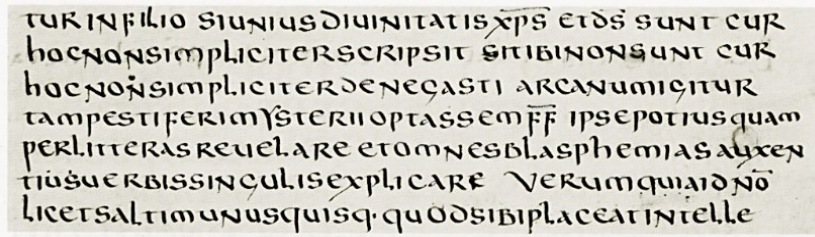 TUR IN FILIO SI UNIUS DIUINITATIS XP̅S̅ ET D̅S̅ SUNT CUR
HOC NON SIMPLICITER SCRIPSIT SI TIBI NON SUNT CUR
HOC NON SIMPLICITER DENEGASTI ARCANUM IGITUR
TAM PESTIFERI MYSTERII OPTASSEM F̅F̅ IPSE POTIUS QUAM
PER LITTERAS REUELARE ET OMNES BLASPHEMIAS AUXEN
TIUS UERBIS SINGULIS EXPLICARE UERUM QUIA ID NO̅
LICET SALTIM UNUSQUISQ· QUOD SIBI PLACEAT INTELLE